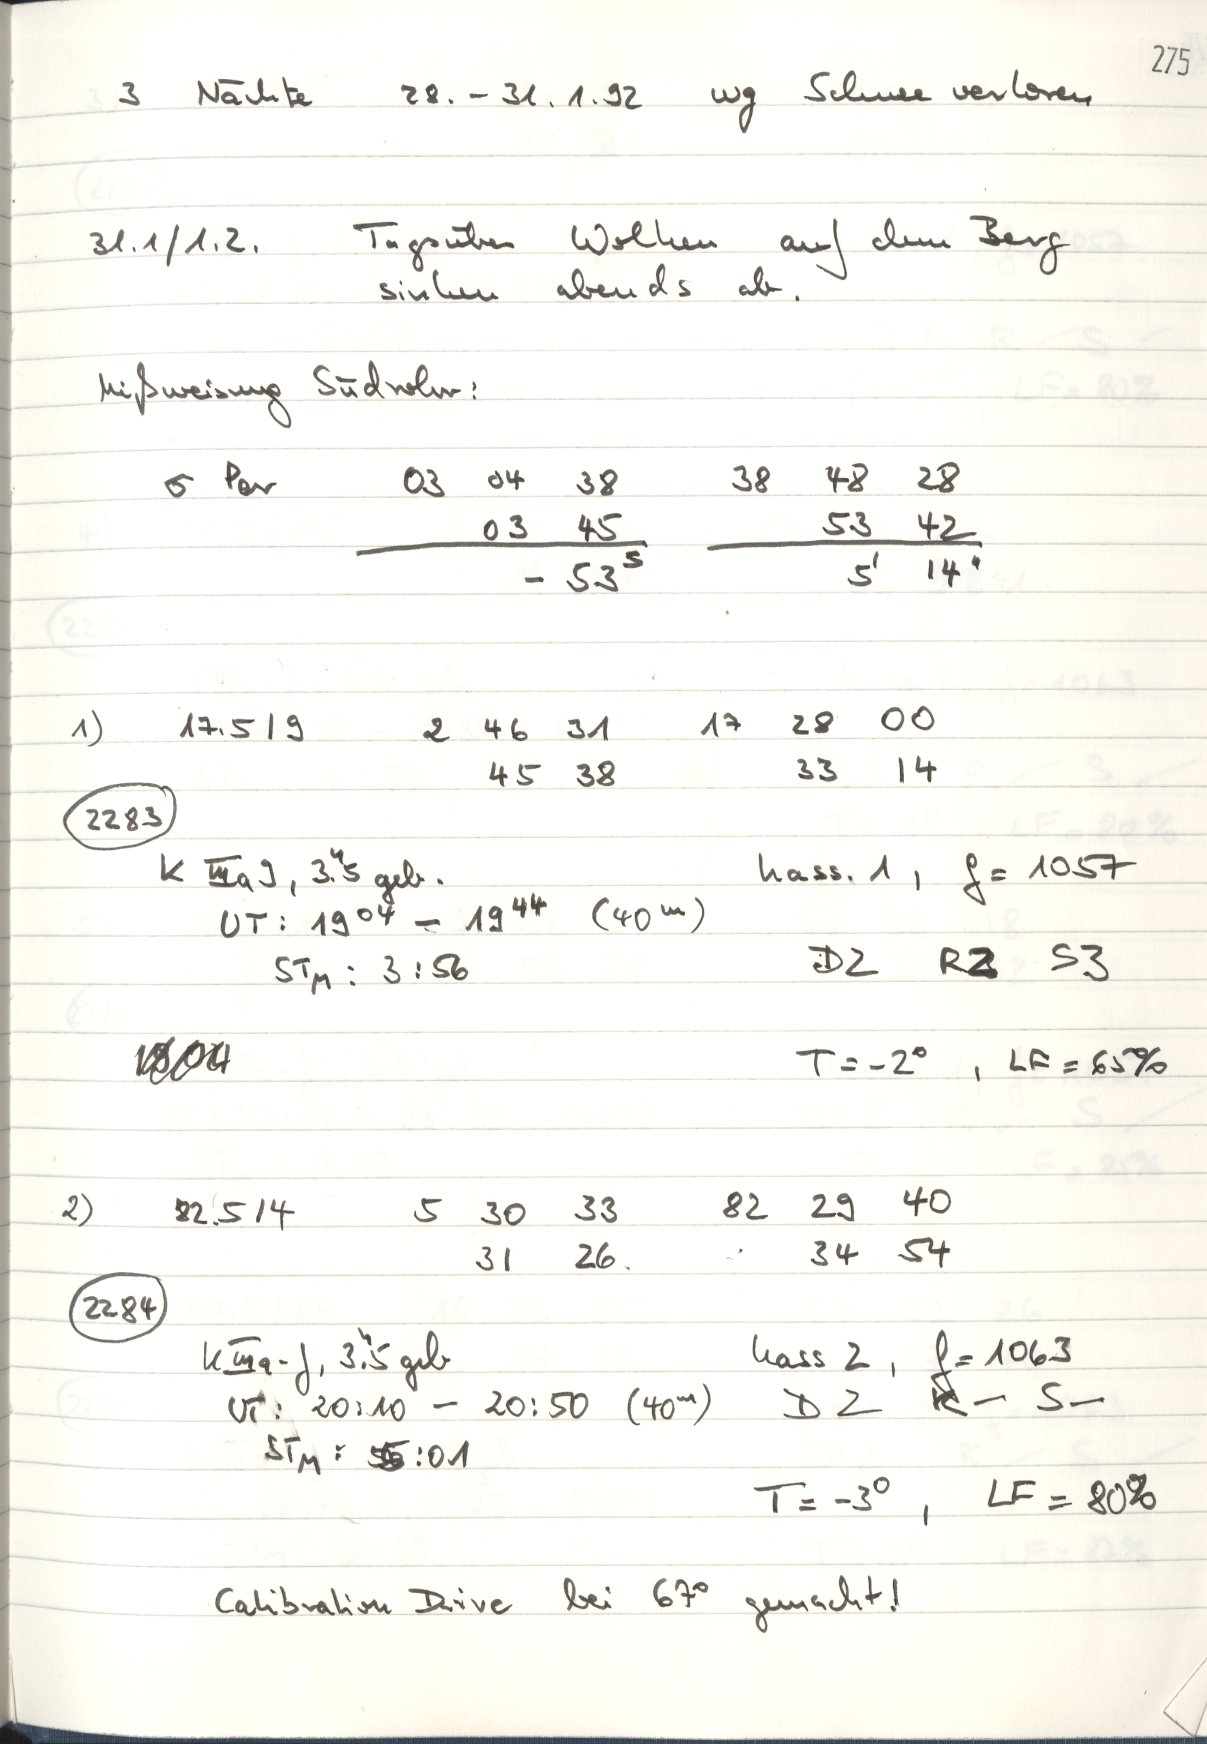 275
3 Nächte 28. - 31.1.92 wg Schnee verloren
31.1/1.2. Tagsüber Wolken auf dem Berg
sinken abends ab.
Mißweisung Südrohr:
σ Per 03 04 38 38 48 28
03 45 53 42
- 53ˢ 5' 14"
1) 17.519 2 46 31 17 28 00
45 38 33 14
2283
K IIIaJ, 3.ʰ5 geb. Kass. 1, f = 1057
UT: 19⁰⁴ - 19⁴⁴ (40ᵐ)
STM : 3:56 D2 R2 S3
T = -2°, LF = 65%
2) 82.514 5 30 33 82 29 40
31 26. 34 54
2284
K IIIa-J, 3.ʰ5 geb Kass 2, f = 1063
UT: 20:10 - 20:50 (40ᵐ) D2 R- S-
STM : 5:01
T = -3°, LF = 80%
Calibration Drive bei 67° gemacht!